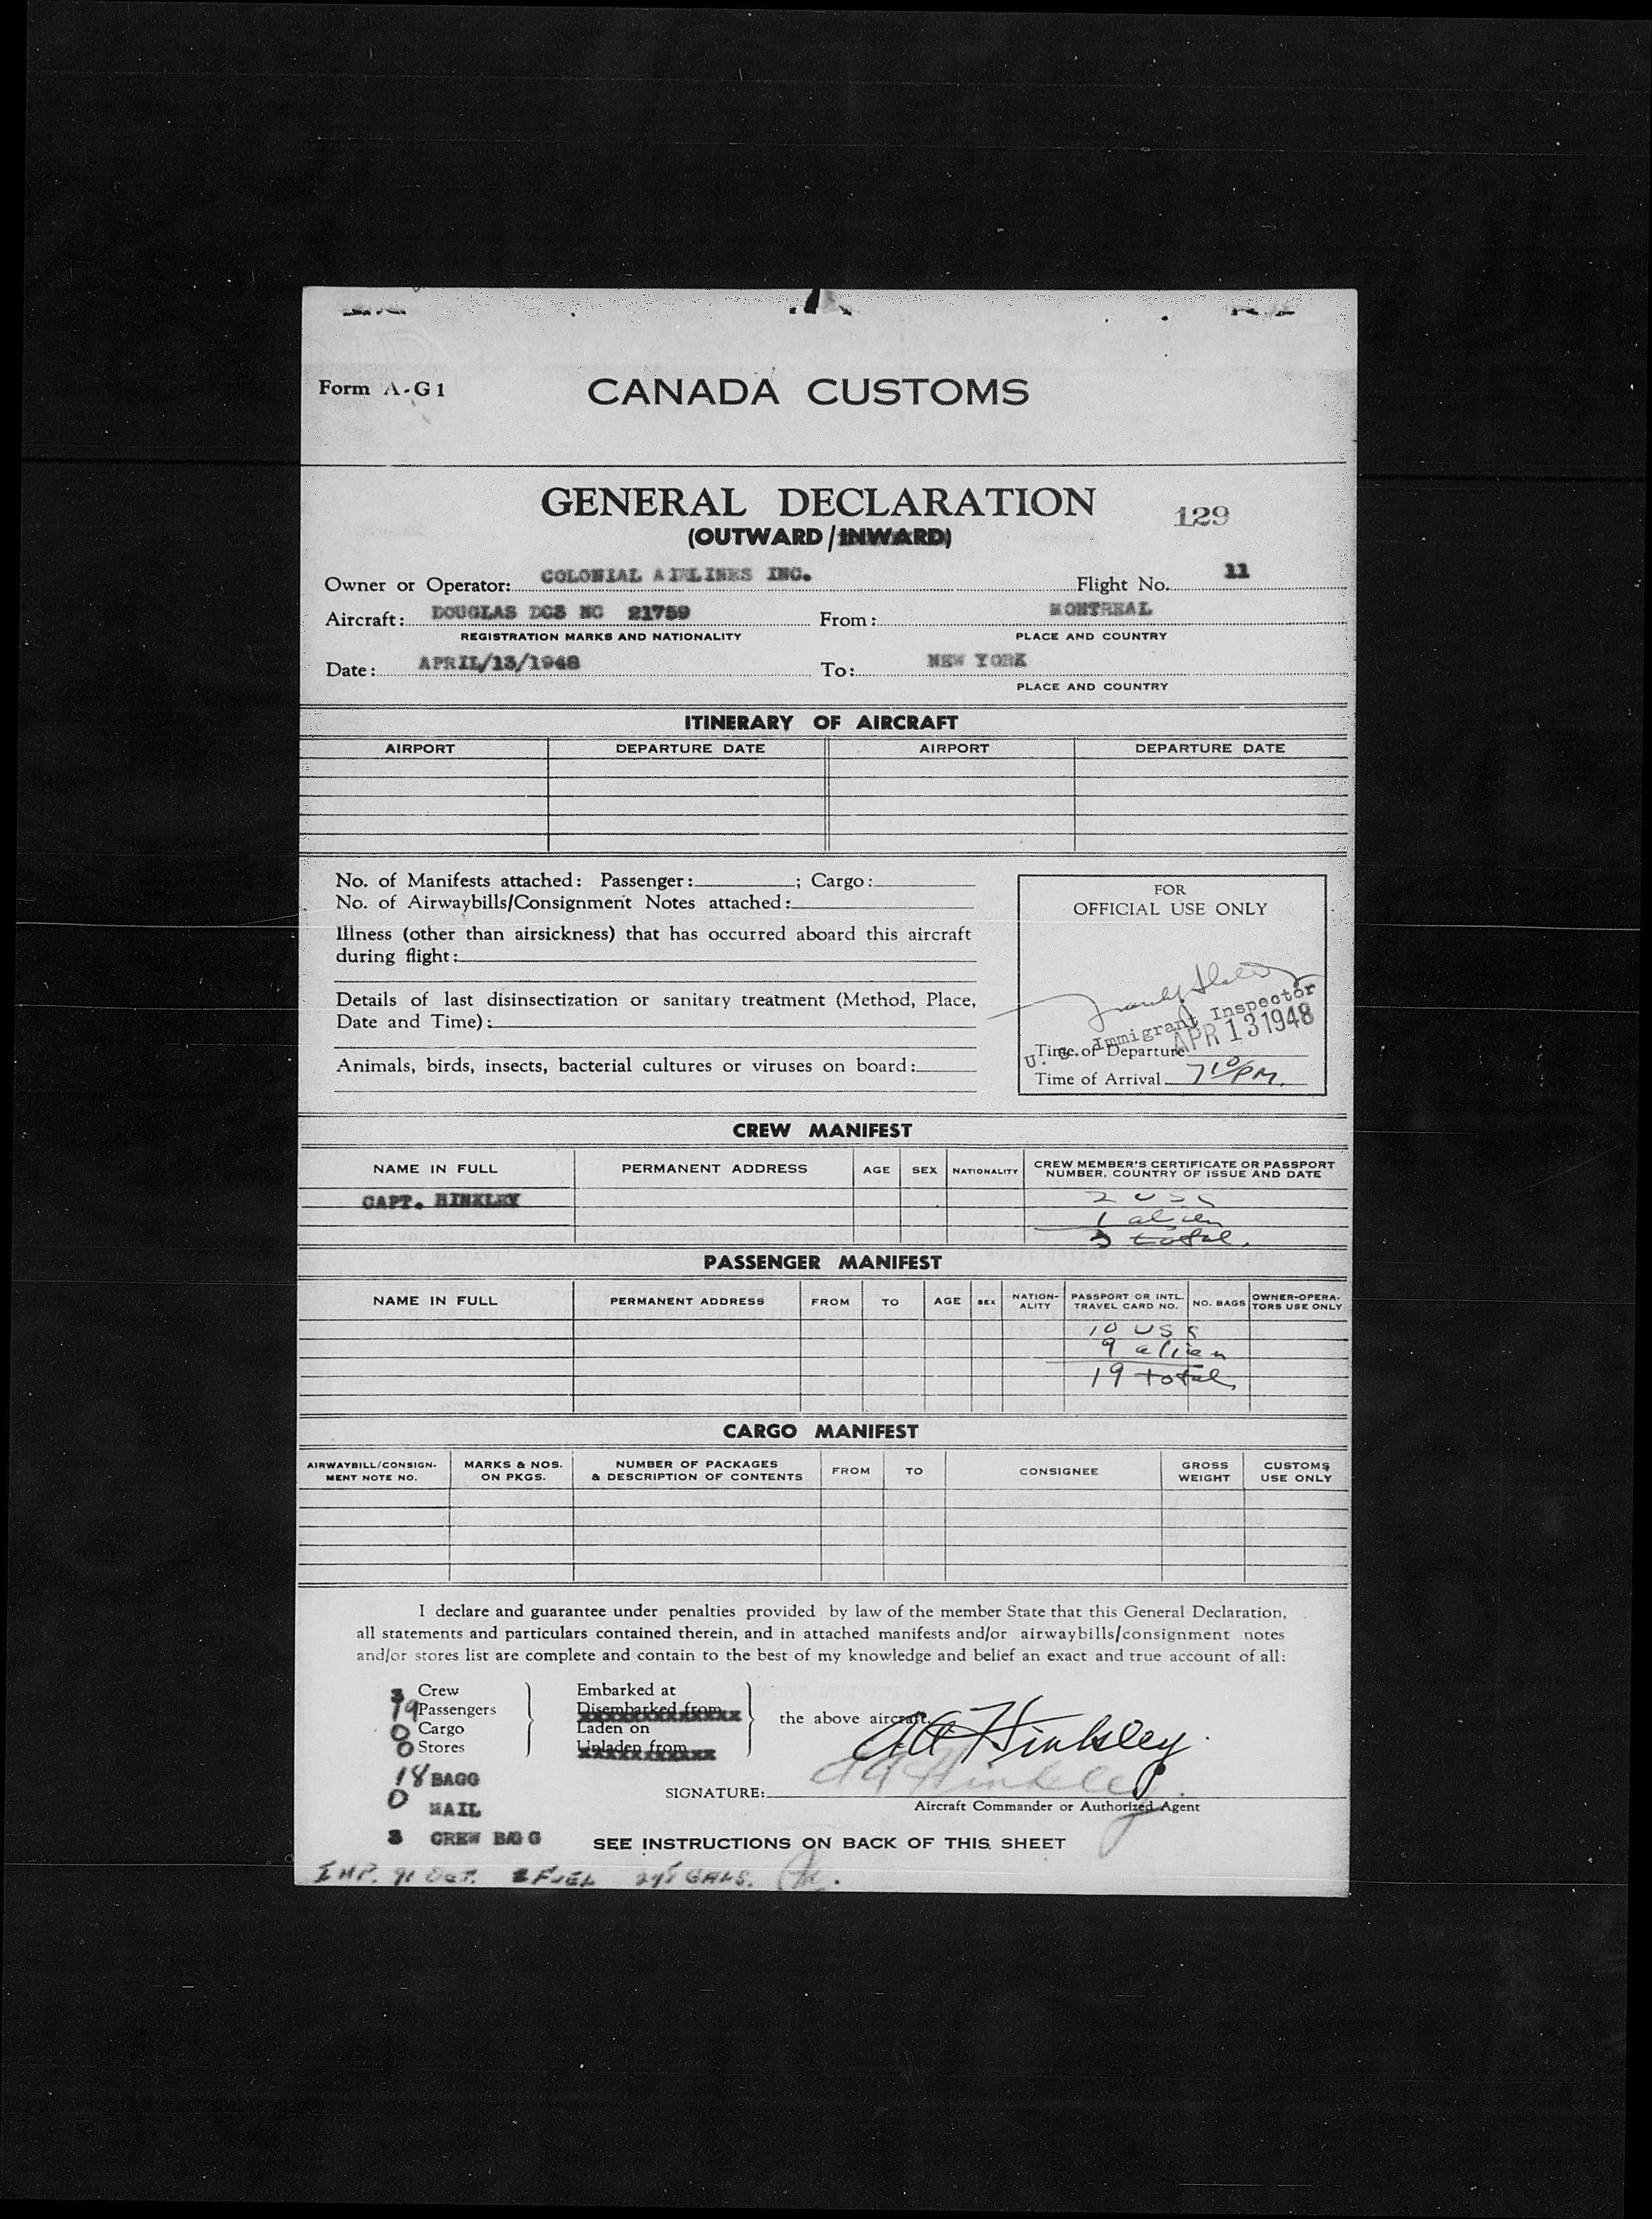 Form A-G1
CANADA CUSTOMS
GENERAL DECLARATION
129
(OUTWARD/INWARD)
Owner or Operator: COLONIAL AIRLINES INC. Flight No. 11
Aircraft: DOUGLAS DC3 NC 21759 From: MONTREAL
REGISTRATION MARKS AND NATIONALITY PLACE AND COUNTRY
Date: APRIL/13/1948 To: NEW YORK
PLACE AND COUNTRY
ITINERARY OF AIRCRAFT
AIRPORT DEPARTURE DATE AIRPORT DEPARTURE DATE
No. of Manifests attached: Passenger: ; Cargo:
No. of Airwaybills/Consignment Notes attached:
Illness (other than airsickness) that has occurred aboard this aircraft
during flight:
Details of last disinsectization or sanitary treatment (Method, Place,
Date and Time):
Animals, birds, insects, bacterial cultures or viruses on board:
FOR
OFFICIAL USE ONLY
U. S. Immigrant Inspector
APR 13 1948
Time of Departure
Time of Arrival 7 10 PM.
CREW MANIFEST
NAME IN FULL PERMANENT ADDRESS AGE SEX NATIONALITY CREW MEMBER'S CERTIFICATE OR PASSPORT
NUMBER, COUNTRY OF ISSUE AND DATE
CAPT. HINKLEY 2 USC
1 alien
3 total.
PASSENGER MANIFEST
NAME IN FULL PERMANENT ADDRESS FROM TO AGE SEX NATION-
ALITY PASSPORT OR INTL.
TRAVEL CARD NO. NO. BAGS OWNER-OPERA-
TORS USE ONLY
10 USC
9 alien
19 total
CARGO MANIFEST
AIRWAYBILL/CONSIGN-
MENT NOTE NO. MARKS & NOS.
ON PKGS. NUMBER OF PACKAGES
& DESCRIPTION OF CONTENTS FROM TO CONSIGNEE GROSS
WEIGHT CUSTOMS
USE ONLY
I declare and guarantee under penalties provided by law of the member State that this General Declaration,
all statements and particulars contained therein, and in attached manifests and/or airwaybills/consignment notes
and/or stores list are complete and contain to the best of my knowledge and belief an exact and true account of all:
3 Crew Embarked at
19 Passengers Disembarked from the above aircraft.
0 Cargo Laden on
0 Stores Unladen from
AA Hinkley
18 BAGG
SIGNATURE: AA Hinkley
0 MAIL
Aircraft Commander or Authorized Agent
3 CREW BAGG
SEE INSTRUCTIONS ON BACK OF THIS SHEET
IMP. 91 OCT. FUEL GALS.